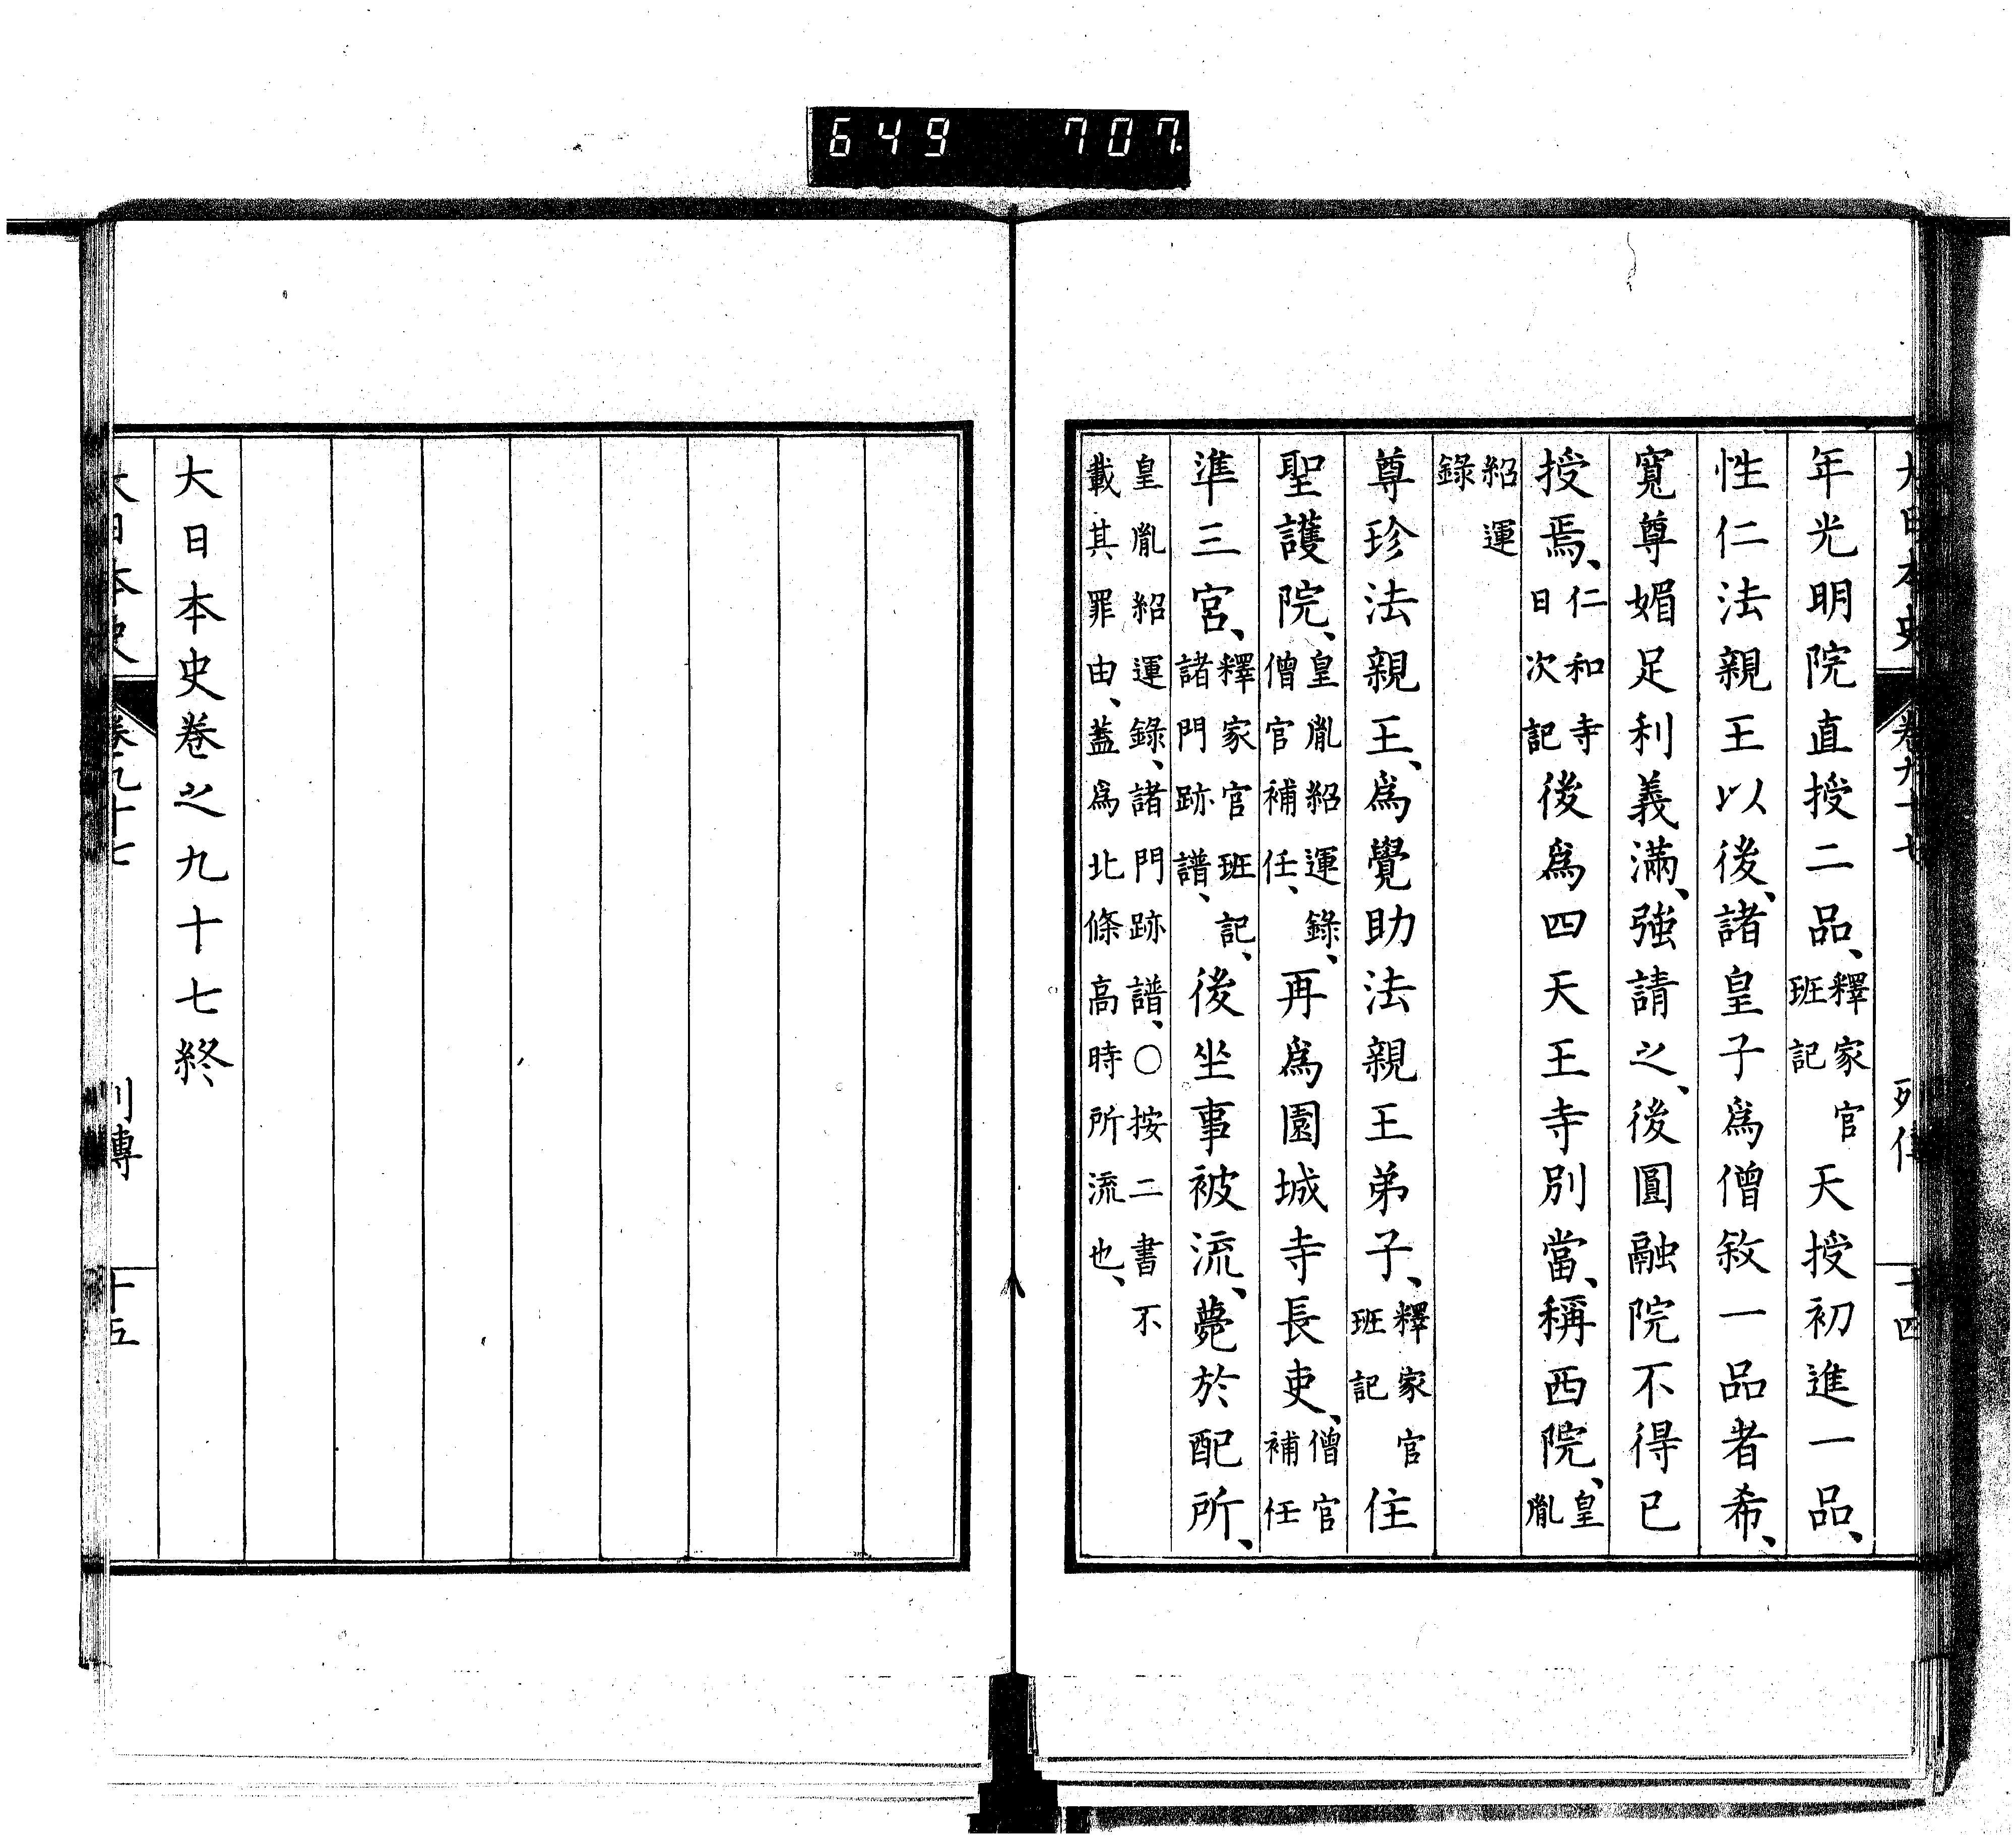 649 707.
大日本史 卷九十七 列傳 十四
年光明院直授二品、釋家官班記天授初進一品、
性仁法親王以後、諸皇子爲僧敘一品者希、
寬尊媚足利義滿、強請之、後圓融院不得已
授焉、仁和寺日次記後爲四天王寺別當、稱西院、皇胤
紹運錄
尊珍法親王、爲覺助法親王弟子、釋家官班記住
聖護院、皇胤紹運錄、僧官補任、再爲園城寺長吏、僧官補任
準三宮、釋家官班記、諸門跡譜、後坐事被流、薨於配所、
皇胤紹運錄、諸門跡譜、○按二書不
載其罪由、蓋爲北條高時所流也、
大日本史卷之九十七終
大日本史 卷九十七 列傳 十五